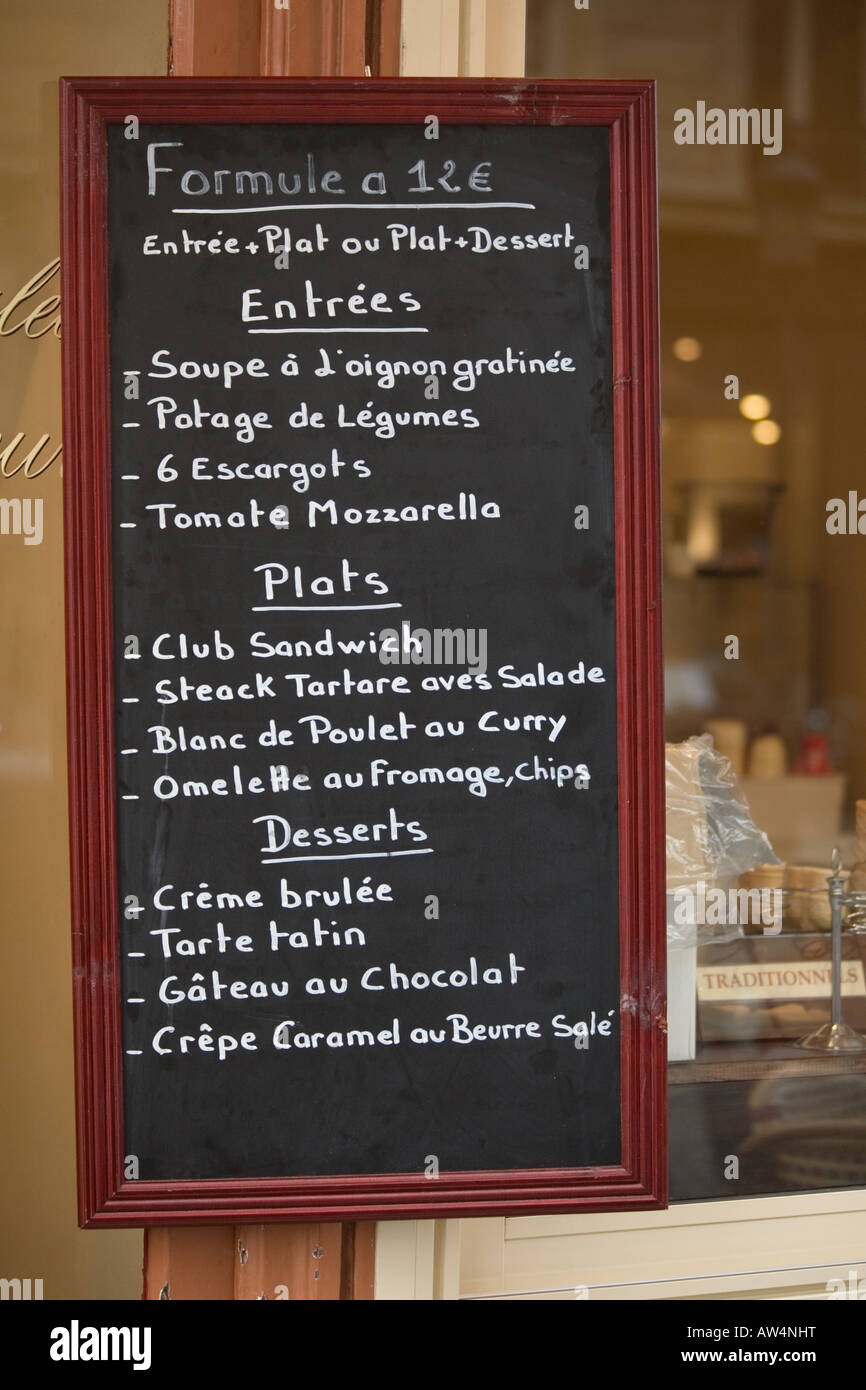 Formule a 12€
Entrée+Plat ou Plat+Dessert
Entrées
- Soupe à L'oignon gratinée
- Potage de Légumes
- 6 Escargots
- Tomate Mozzarella
Plats
- Club Sandwich
- Steack Tartare aves Salade
- Blanc de Poulet au Curry
- Omelette au Fromage, chips
Desserts
- Crême brulée
- Tarte tatin
- Gâteau au Chocolat
- Crêpe Caramel au Beurre Salé
TRADITIONNELS
alamy
Image ID: AW4NHT
www.alamy.com